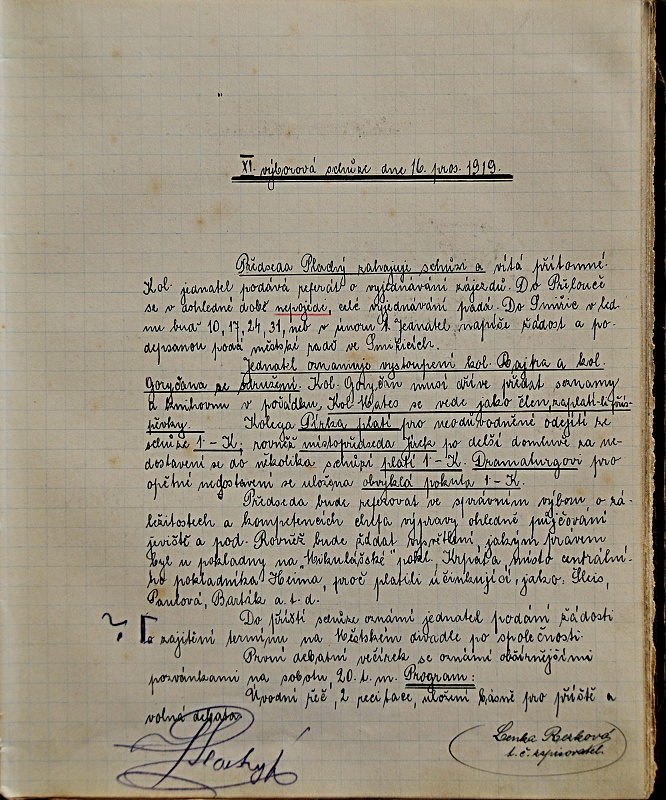 XI. výborová schůze dne 16. pros. 1919.
Předseda Plachý zahajuje schůzi a vítá přítomné.
Kol. jednatel podává referát o vyjednávání zájezdů. Do Přelouče
se v dohledné době nepojede, celé vyjednávání padá. Do Smiřic v led-
nu buď 10, 17, 24, 31, neb v únoru 1. Jednatel napíše žádost a po-
depsanou podá městské radě ve Smiřicích.
Jednatel oznamuje vystoupení kol. Bajka a kol.
Goryčana ze sdružení. Kol. Goryčan musí dříve předat seznamy
a knihovnu v pořádku, Kol. Mates se vede jako člen, zaplatí-li přís-
pěvky. Kolega Pirka platí pro neodůvodněné odejití ze
schůze 1 - K; rovněž místopředseda Jirek po delší domluvě za ne-
dostavení se do několika schůzí platí 1 - K. Dramaturgovi pro
opětné nedostavení se uložena obvyklá pokuta 1 - K.
Předseda bude referovat ve správním výboru o zá-
ležitostech a kompetencích chefa výpravy ohledně půjčování
jeviště a pod. Rovněž bude žádat vysvětlení jakým právem
byl u pokladny na "Mikulášské" pokl. Krpata místo centrální-
ho pokladníka Heima, proč platili účinkující, jako: Šleis,
Paulová, Barták a. t. d.
Do příští schůze oznámí jednatel podání žádosti
o zajištění termínu na Městském divadle po společnosti.
První debatní večírek se oznámí obšírnějšími
pozvánkami na sobotu, 20. t. m. Program:
Úvodní řeč, 2 recitace, uložení básně pro příště a
volná debata.
Plachý
Lenka
t. č. zapisovatel.